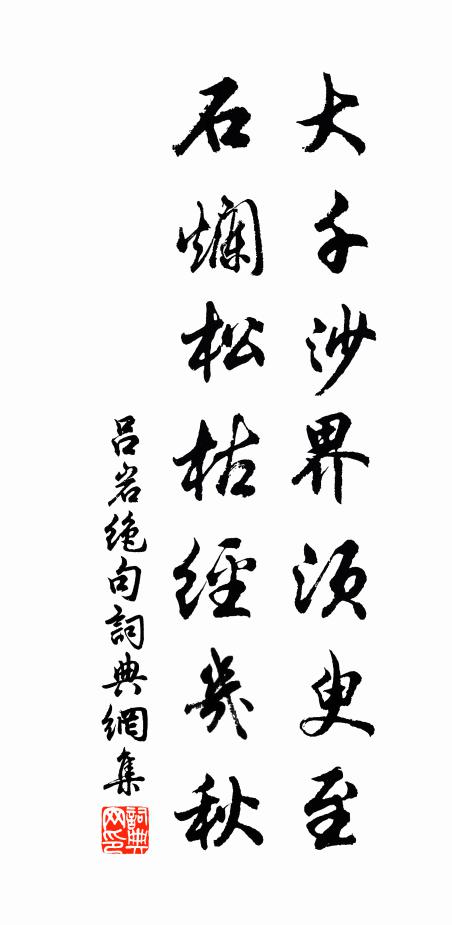 大千沙界須臾至
石爛松枯經幾秋
呂岩絶句詞典網集
詞典網印